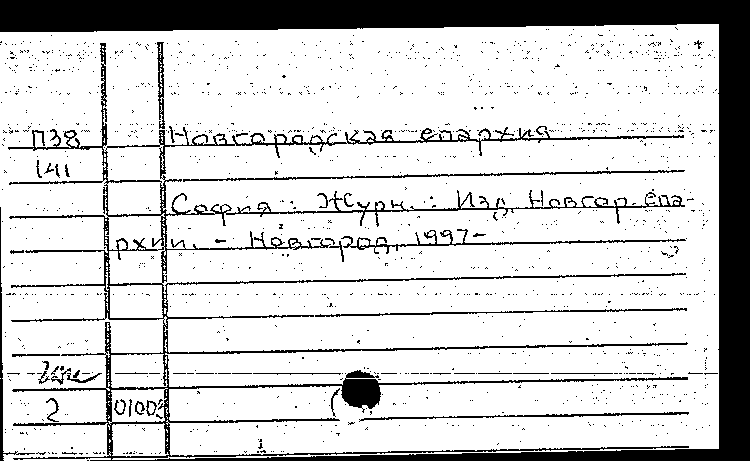 П38 Новгородская епархия
141
София : Журн. : Изд. Новгор. епа-
рхии. - Новгород, 1997-
2 01003